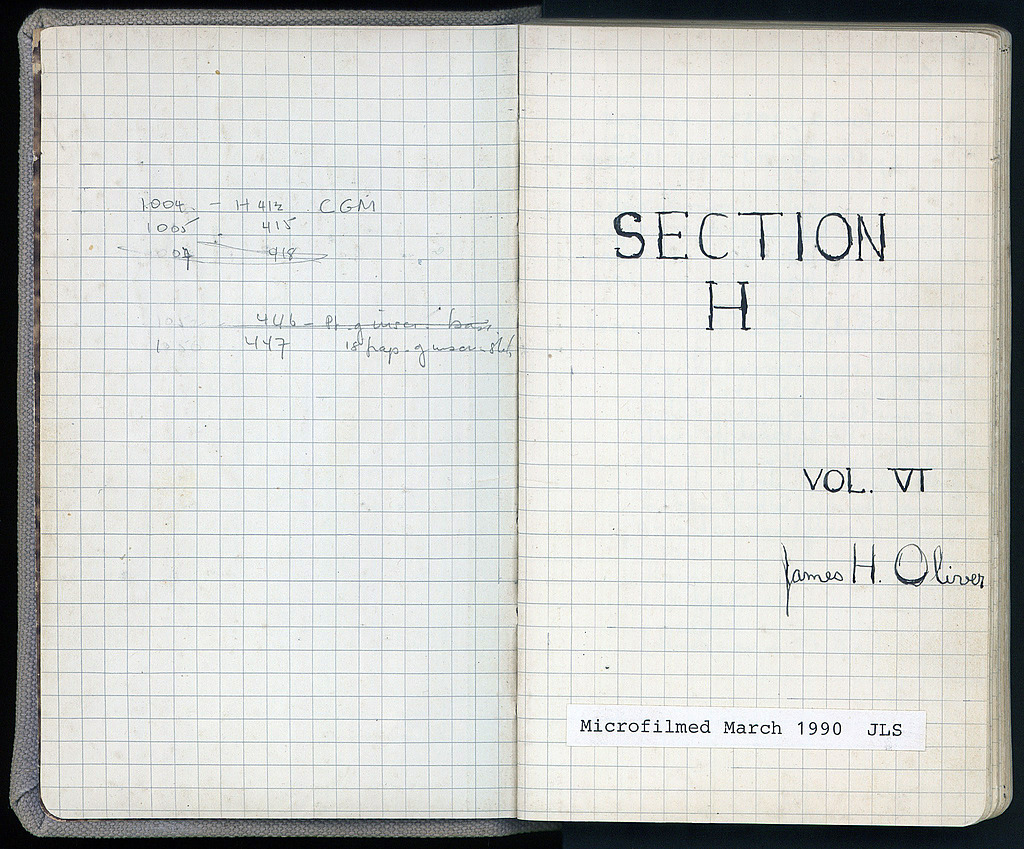 1004. - H 412 CGM
1005 415
07 418
446 -
447
SECTION
H
VOL. VI
James H. Oliver
Microfilmed March 1990 JLS